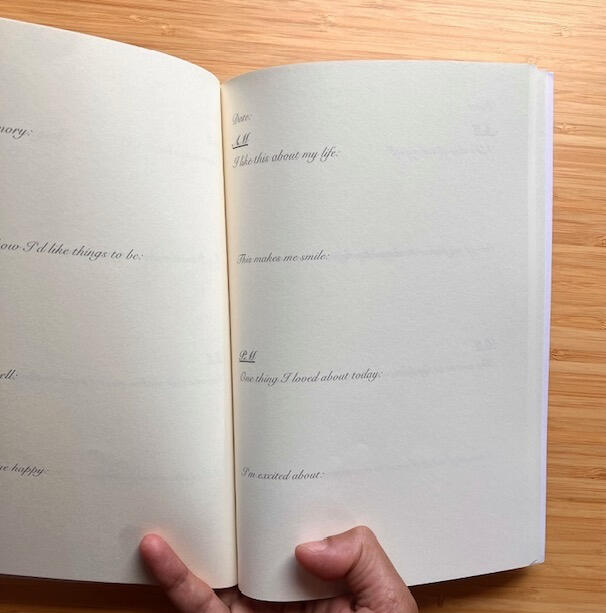 how I'd like things to be:
happy:
Date:
AM
I like this about my life:
This makes me smile:
PM
One thing I loved about today:
I'm excited about: